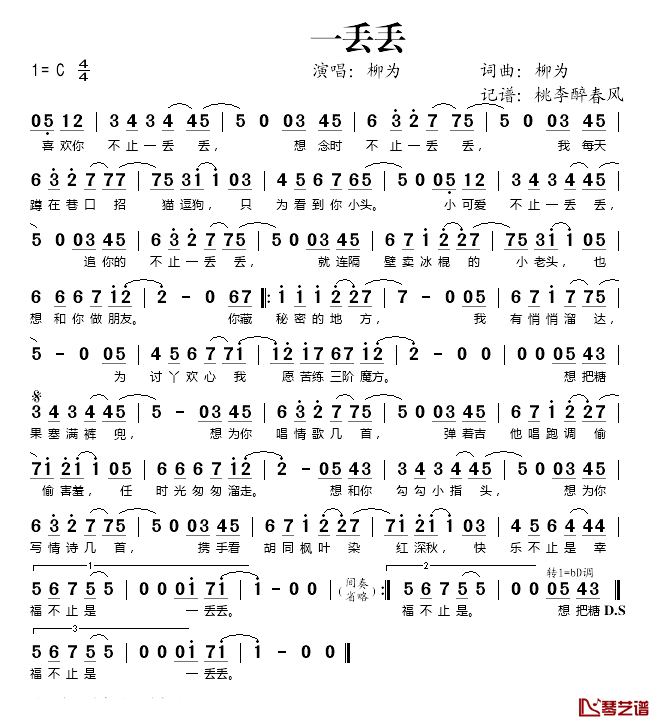 一丢丢
1= C 4/4 演唱：柳为 词曲：柳为
记谱：桃李醉春风
05 12 | 3 4 3 4 45 | 5 0 03 45 | 6 3 2 7 75 | 5 0 03 45 |
喜欢你 不止一丢 丢， 想 念时 不止一丢 丢， 我 每天
6 3 2 7 77 | 75 31 1 03 | 4 5 6 7 65 | 5 0 0 05 | 3 4 3 4 45 |
蹲在巷口招 猫逗狗， 只 为看到你小头。 小可爱 不止一丢 丢，
5 0 03 45 | 6 3 2 7 75 | 5 0 03 45 | 6 7 1 2 27 | 75 31 1 05 |
追你的 不止一丢 丢， 就连隔 壁卖冰棍 的 小老头， 也
6 6 6 7 12 | 2 - 0 67 ‖: 1 1 1 2 27 | 7 - 0 05 | 6 7 1 7 75 |
想和你做朋友。 你藏 秘密的地 方， 我 有悄悄溜 达，
5 - 0 05 | 4 5 6 7 71 | 12 17 67 12 | 2 - 0 0 | 0 0 05 43 |
为 讨丫欢心 我 愿苦练三阶魔方。 想把糖
3 4 3 4 45 | 5 - 03 45 | 6 3 2 7 75 | 5 0 03 45 | 6 7 1 2 27 |
果塞满裤 兜， 想为你 唱情歌几 首， 弹着吉 他唱跑调 偷
71 21 1 05 | 6 6 6 7 12 | 2 - 03 43 | 3 4 3 4 45 | 5 0 03 45 |
偷害羞， 任 时光匆匆溜走。 想和你 勾勾小指 头， 想为你
6 3 2 7 75 | 5 0 03 45 | 6 7 1 2 27 | 71 21 1 03 | 4 5 6 4 45 |
写情诗几 首， 携手看 胡同枫叶 染 红深秋， 快 乐不止是 幸
1 2 转1=bD调
5 6 7 5 5 | 0 0 01 71 | 1 - - (间奏省略) :‖ 5 6 7 5 5 | 0 0 05 43 ‖
福不止是 一丢丢。 福不止是。 想把糖 D.S
3
5 6 7 5 5 | 0 0 01 71 | 1 - 0 0 ‖
福不止是 一丢丢。
琴艺谱